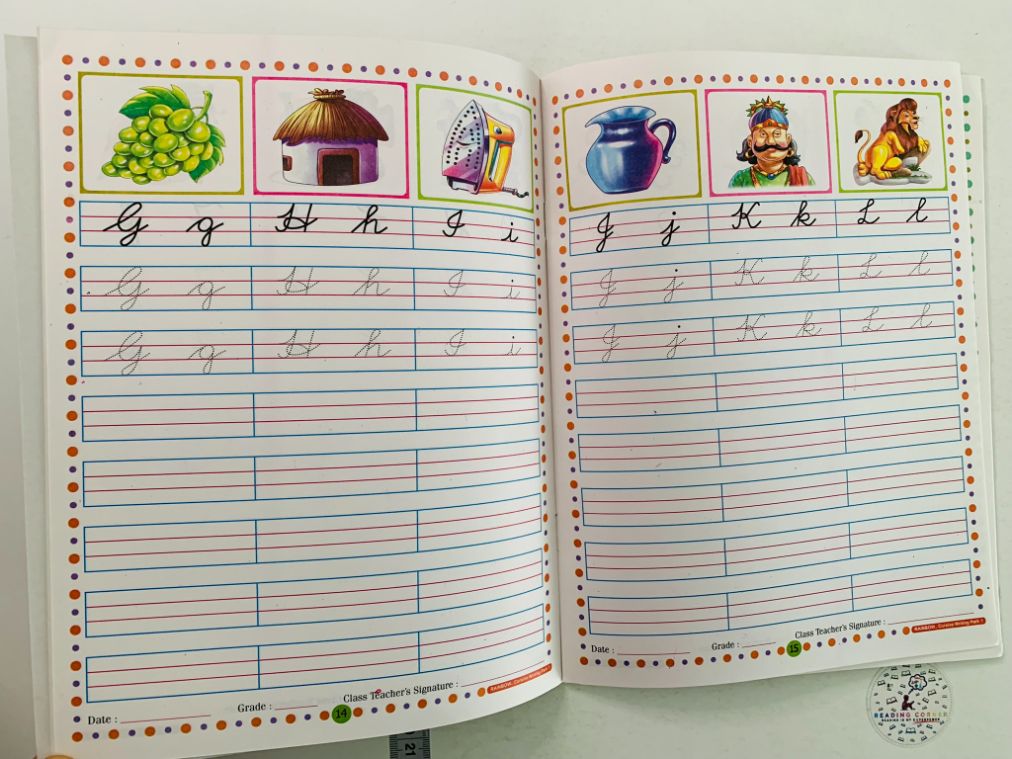 G g H h I i
G g H h I i
G g H h I i
Class Teacher's Signature :
RAINBOW, Cursive Writing Path 1
Date : Grade :
14
J j K k L l
J j K k L l
J j K k L l
Class Teacher's Signature :
RAINBOW, Cursive Writing Path 1
Date : Grade :
15
READING CORNER
21